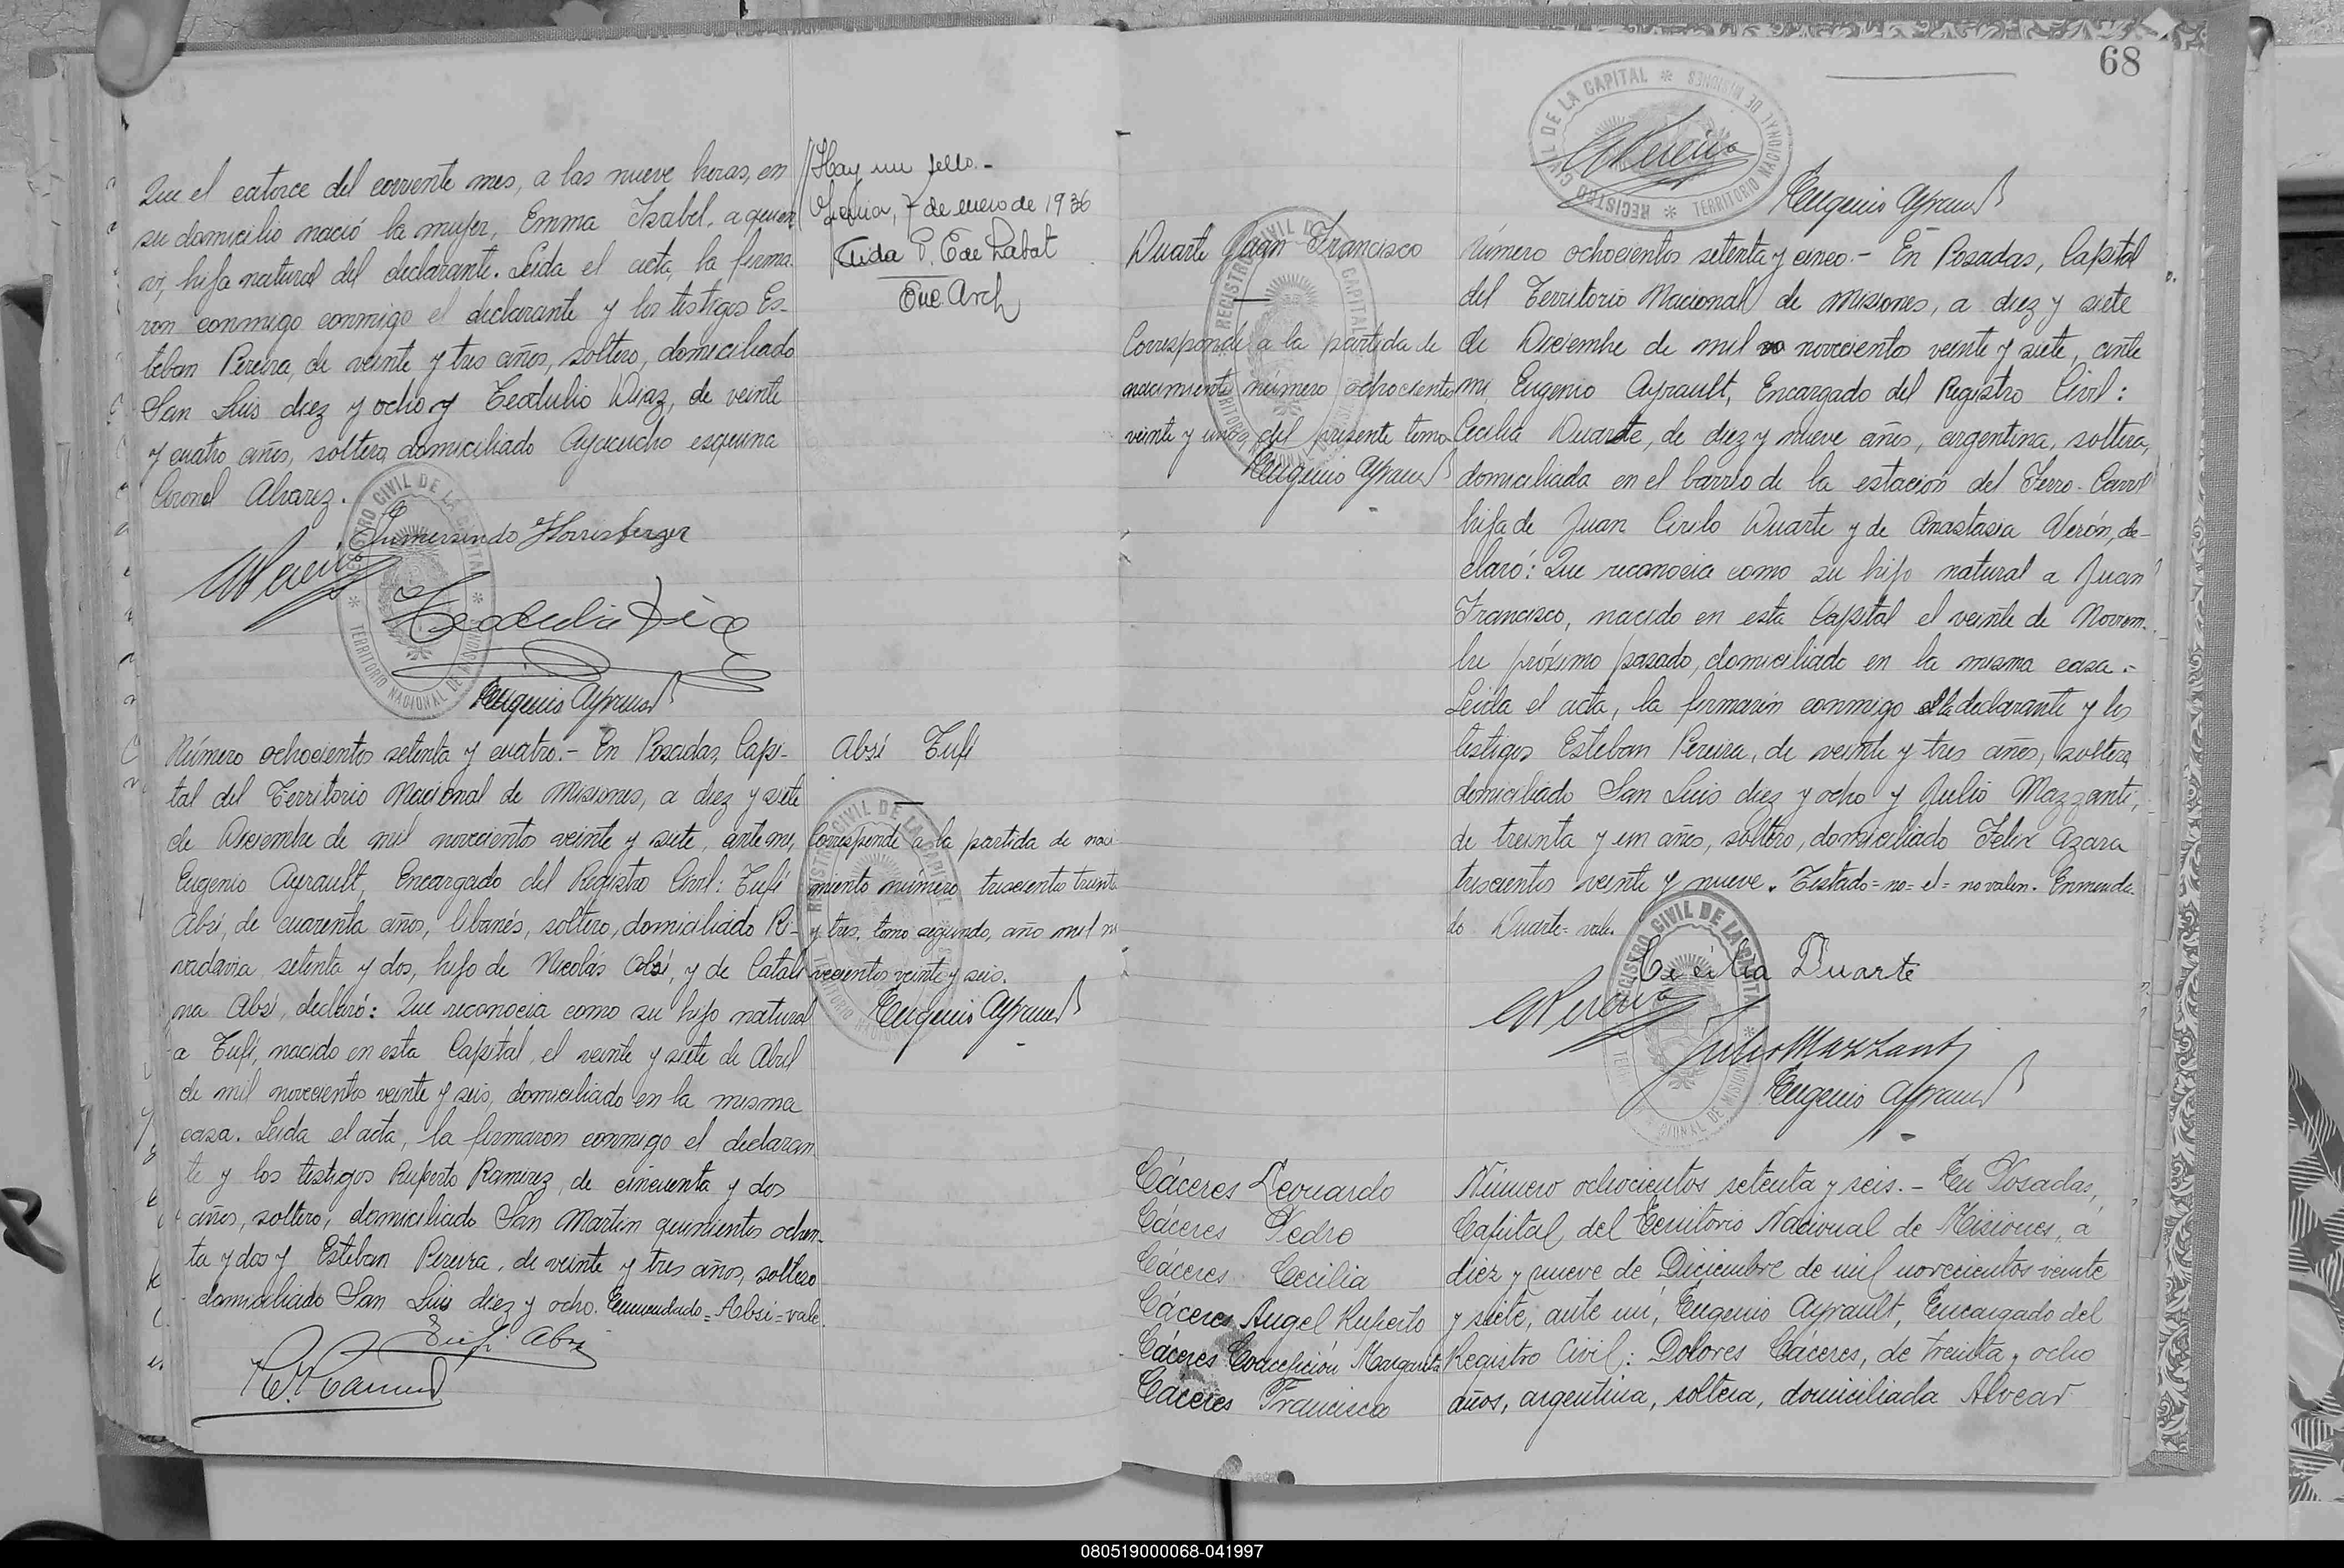 Que el catorce del corriente mes, a las nueve horas, en
su domicilio nació la mujer, Emma Isabel, a quien
vi, hija natural del declarante. Leida el acta, la firma
ron conmigo conmigo el declarante y los testigos Es-
teban Pereira, de veinte y tres años, soltero, domiciliado
San Luis diez y ocho y Teodulio Diaz, de veinte
y cuatro años, soltero, domiciliado Ayacucho esquina
Coronel Alvarez.
Gumersindo Horrisberger
Teodulio Diaz
Eugenio Ayrault
Hay un sello.-
7 de enero de 1936
Enc. Arch
Número ochocientos setenta y cuatro.- En Posadas, Capi-
tal del Territorio Nacional de Misiones, a diez y siete
de Diciembre de mil novecientos veinte y siete, ante mi,
Eugenio Ayrault, Encargado del Registro Civil: Tufi
Absi, de cuarenta años, libanés, soltero, domiciliado Ri-
vadavia setenta y dos, hijo de Nicolás Absi, y de Catali
na Absi, declaró: Que reconocia como su hijo natural
a Tufi, nacido en esta Capital, el veinte y siete de Abril
de mil novecientos veinte y seis, domiciliado en la misma
casa. Leida el acta, la firmaron conmigo el declaran
te y los testigos Ruperto Ramirez, de cincuenta y dos
años, soltero, domiciliado San Martin quinientos ochen-
ta y dos y Esteban Pereira, de veinte y tres años, soltero
domiciliado San Luis diez y ocho. Enmendado=Absi=vale.
Tufi Absi
Absi Tufi
Corresponde a la partida de naci
miento número trescientos treinta
y tres, tomo segundo, año mil no
vecientos veinte y seis.
Eugenio Ayrault
REGISTRO CIVIL DE LA CAPITAL * TERRITORIO NACIONAL DE MISIONES *
68
Eugenio Ayrault
Duarte Juan Francisco
Corresponde a la partida de
nacimiento número ochocientos
veinte y uno, del presente tomo
Eugenio Ayrault
Número ochocientos setenta y cinco.- En Posadas, Capital
del Territorio Nacional de Misiones, a diez y siete
de Diciembre de mil no novecientos veinte y siete, ante
mi, Eugenio Ayrault, Encargado del Registro Civil:
Cecilia Duarte, de diez y nueve años, argentina, soltera,
domiciliada en el barrio de la estación del Ferro-Carril
hija de Juan Cirilo Duarte y de Anastasia Verón, de-
claró: Que reconocia como su hijo natural a Juan
Francisco, nacido en esta Capital el veinte de Noviem-
bre próximo pasado, domiciliado en la misma casa.-
Leida el acta, la firmarón conmigo el la declarante y los
testigos Esteban Pereira, de veinte y tres años, soltero,
domiciliado San Luis diez y ocho y Julio Mazzanti,
de treinta y un años, soltero, domiciliado Felix Azara
trescientos veinte y nueve. Testado=no=el=no valen. Enmenda-
do Duarte=vale.
Cecilia Duarte
Julio Mazzanti
Eugenio Ayrault
Cáceres Leonardo
Cáceres Pedro
Cáceres Cecilia
Cáceres Angel Ruperto
Cáceres Concepción Margarita
Cáceres Francisca
Número ochocientos setenta y seis.- En Posadas,
Capital del Territorio Nacional de Misiones, a
diez y nueve de Diciembre de mil novecientos veinte
y siete, ante mi, Eugenio Ayrault, Encargado del
Registro Civil: Dolores Cáceres, de treinta y ocho
años, argentina, soltera, domiciliada Alvear
080519000068-041997